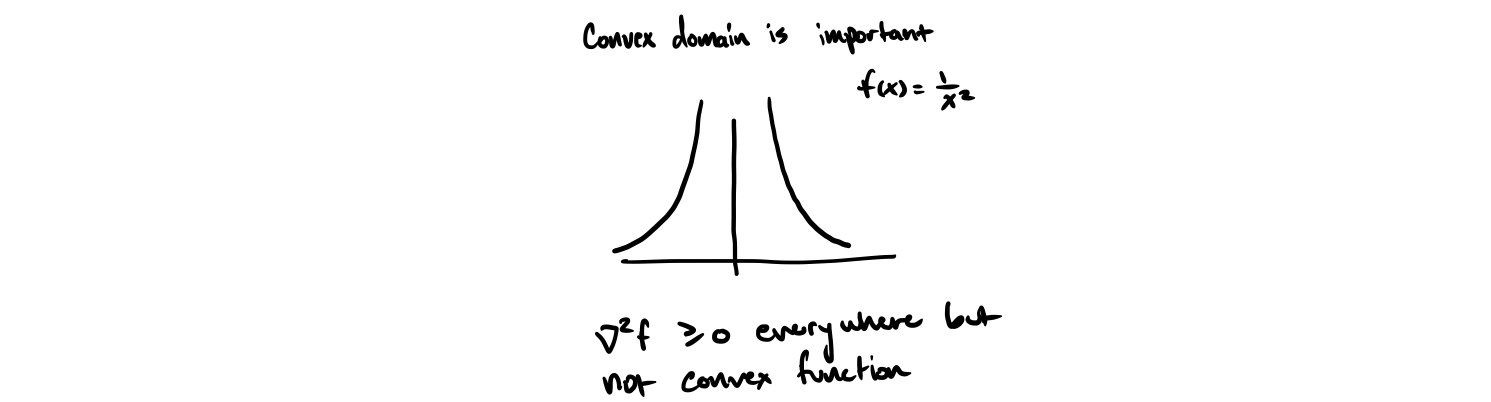 Convex domain is important
f(x) = 1/x²
∇²f ⩾ 0 everywhere but
not convex function